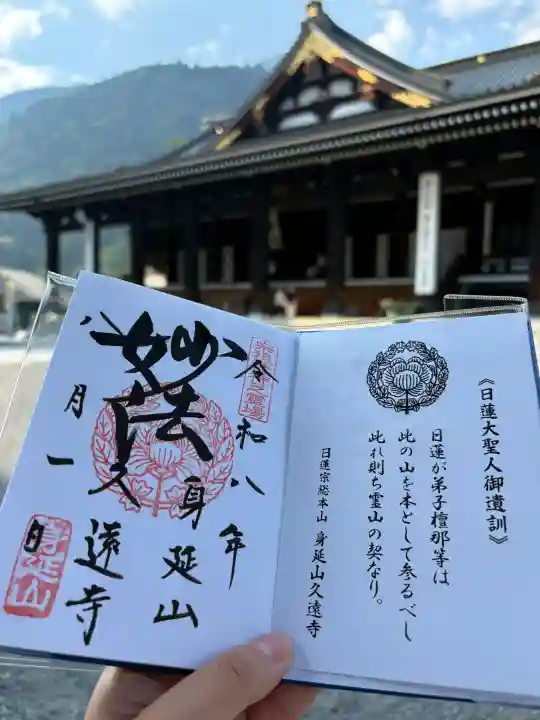 《日蓮大聖人御遺訓》
日蓮が弟子檀那等は
此の山を本として参るべし
此れ則ち霊山の契なり。
日蓮宗総本山 身延山久遠寺
令和八年
身延山
妙法
久遠寺
八月一日
身延山